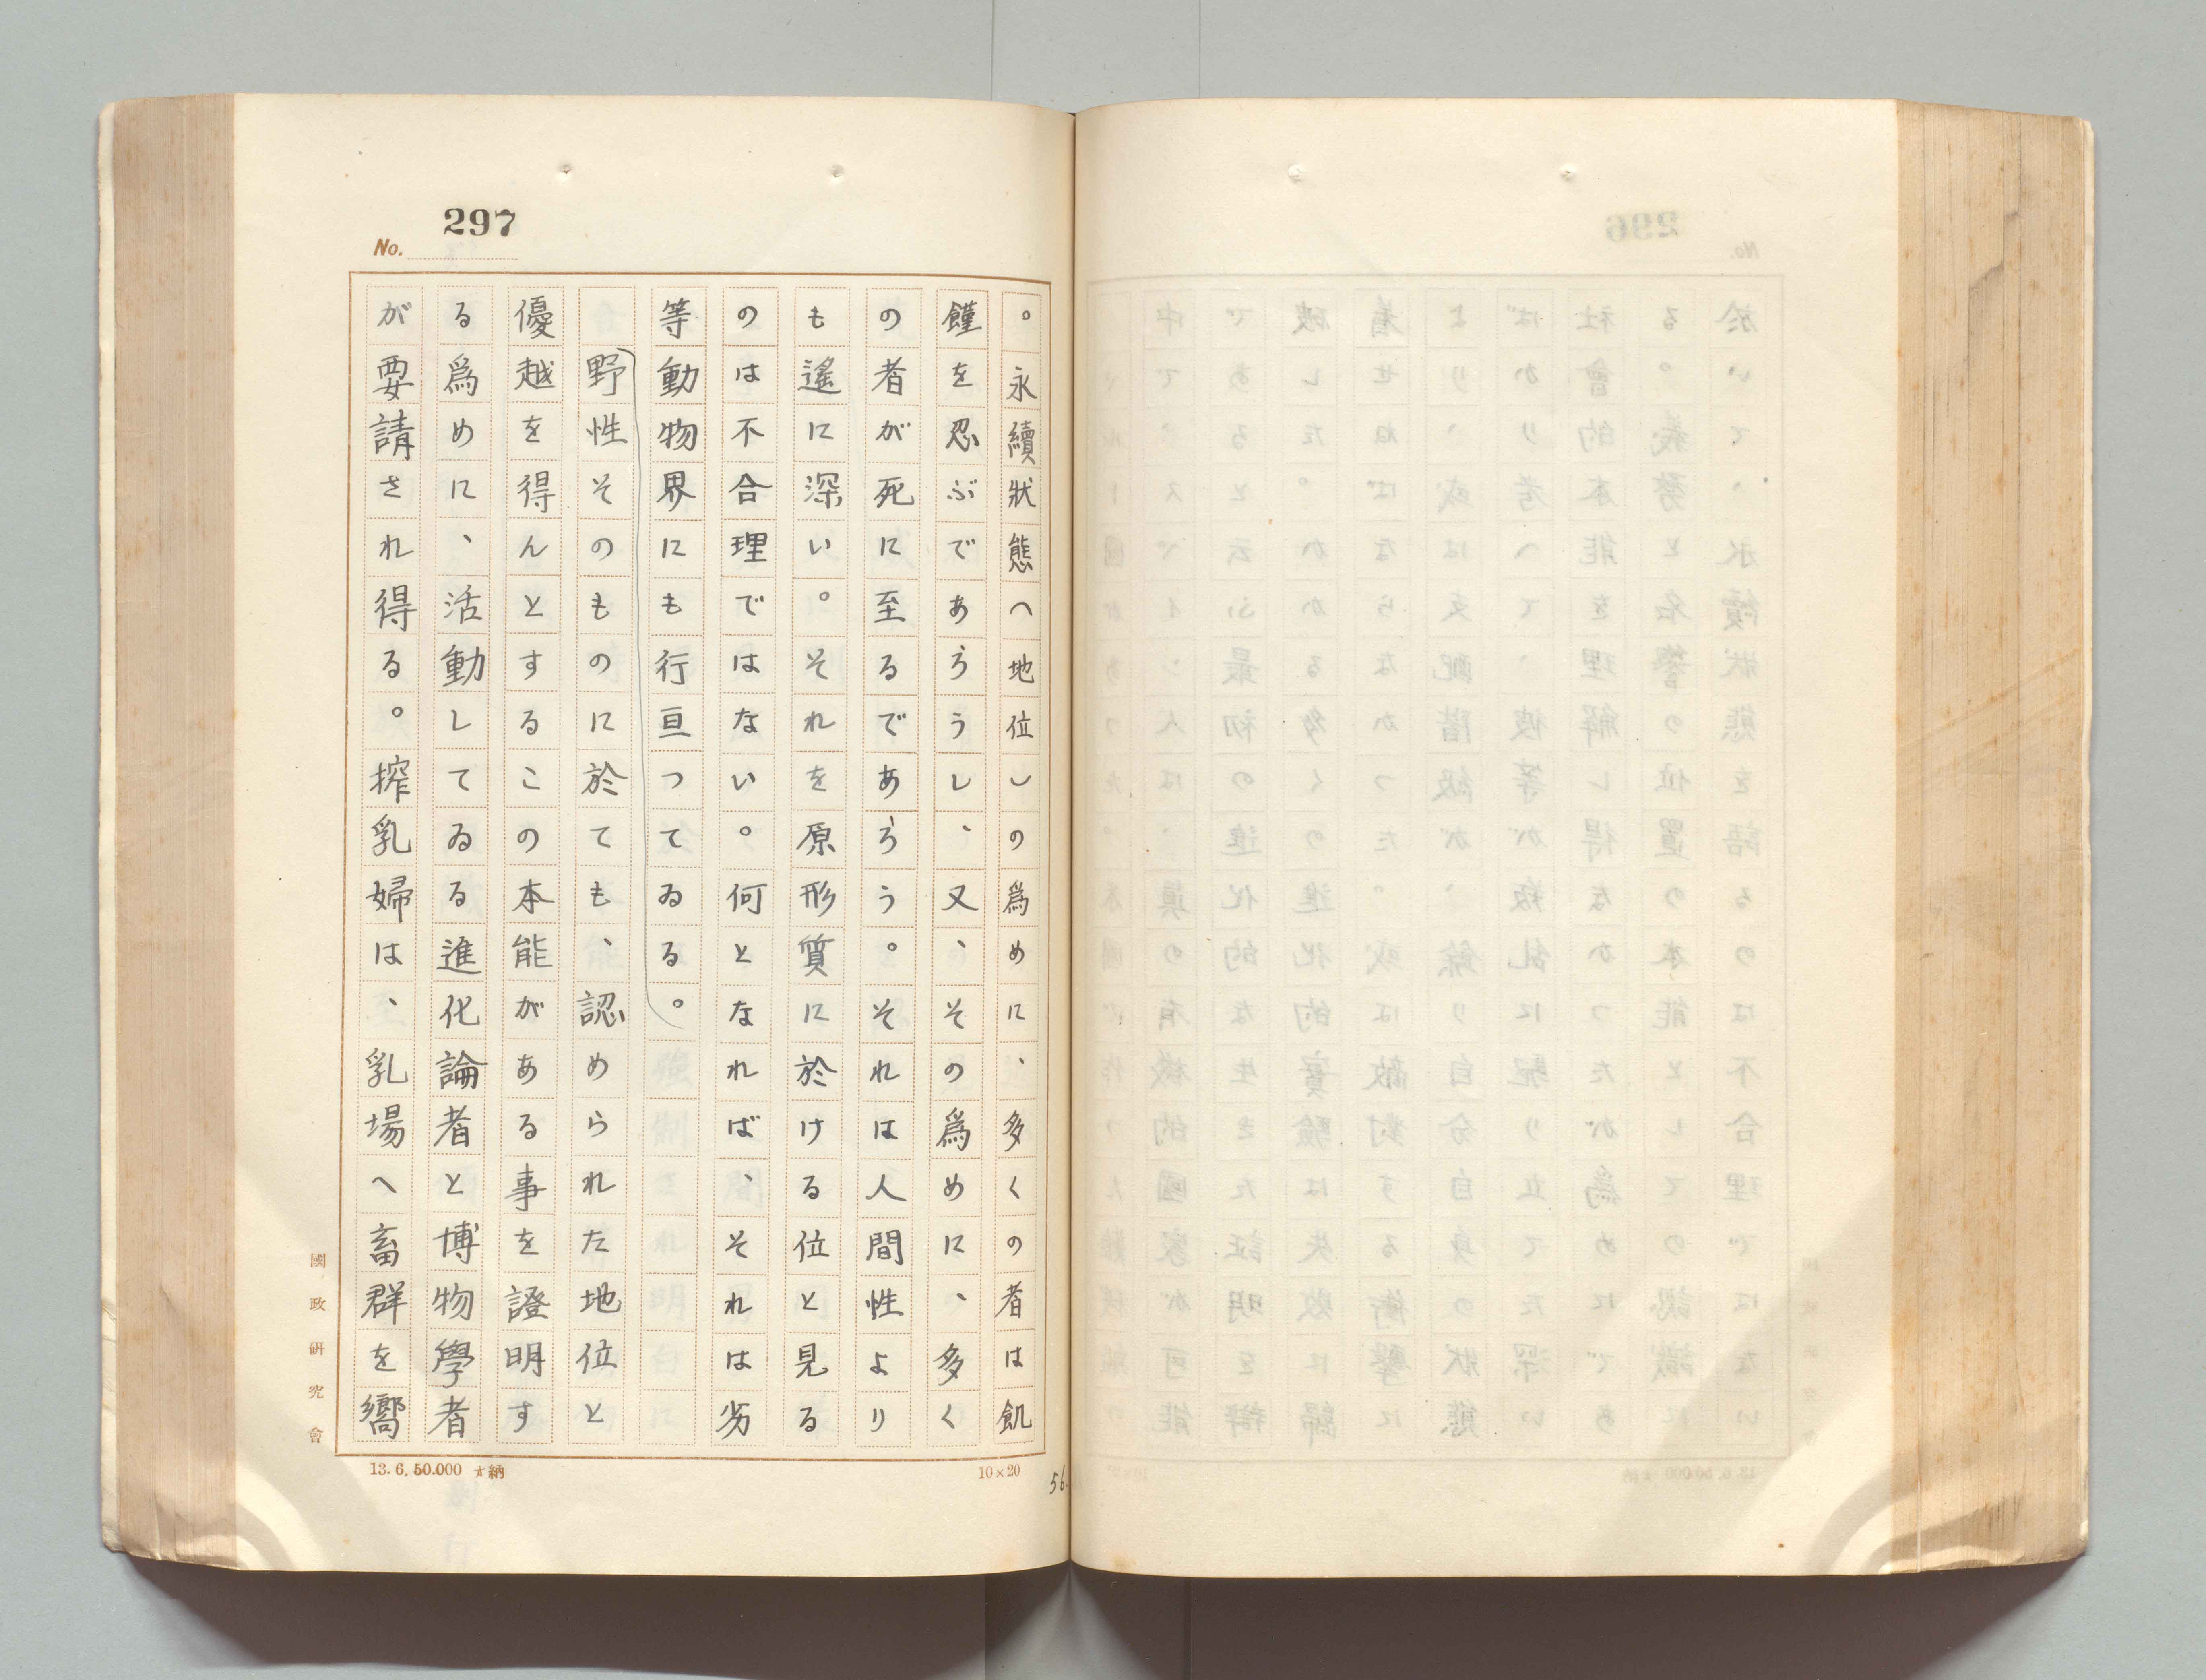 297
No.
。永續狀態（地位）の爲めに、多くの者は飢
饉を忍ぶであらうし、又、その爲めに、多く
の者が死に至るであらう。それは人間性より
も遙に深い。それを原形質に於ける位と見る
のは不合理ではない。何となれば、それは劣
等動物界にも行亘つてゐる。
野性そのものに於ても、認められた地位と
優越を得んとするこの本能がある事を證明す
る爲めに、活動してゐる進化論者と博物學者
が要請され得る。搾乳婦は、乳場へ畜群を嚮
國政研究會
13.6.50.000 納
10×20
56